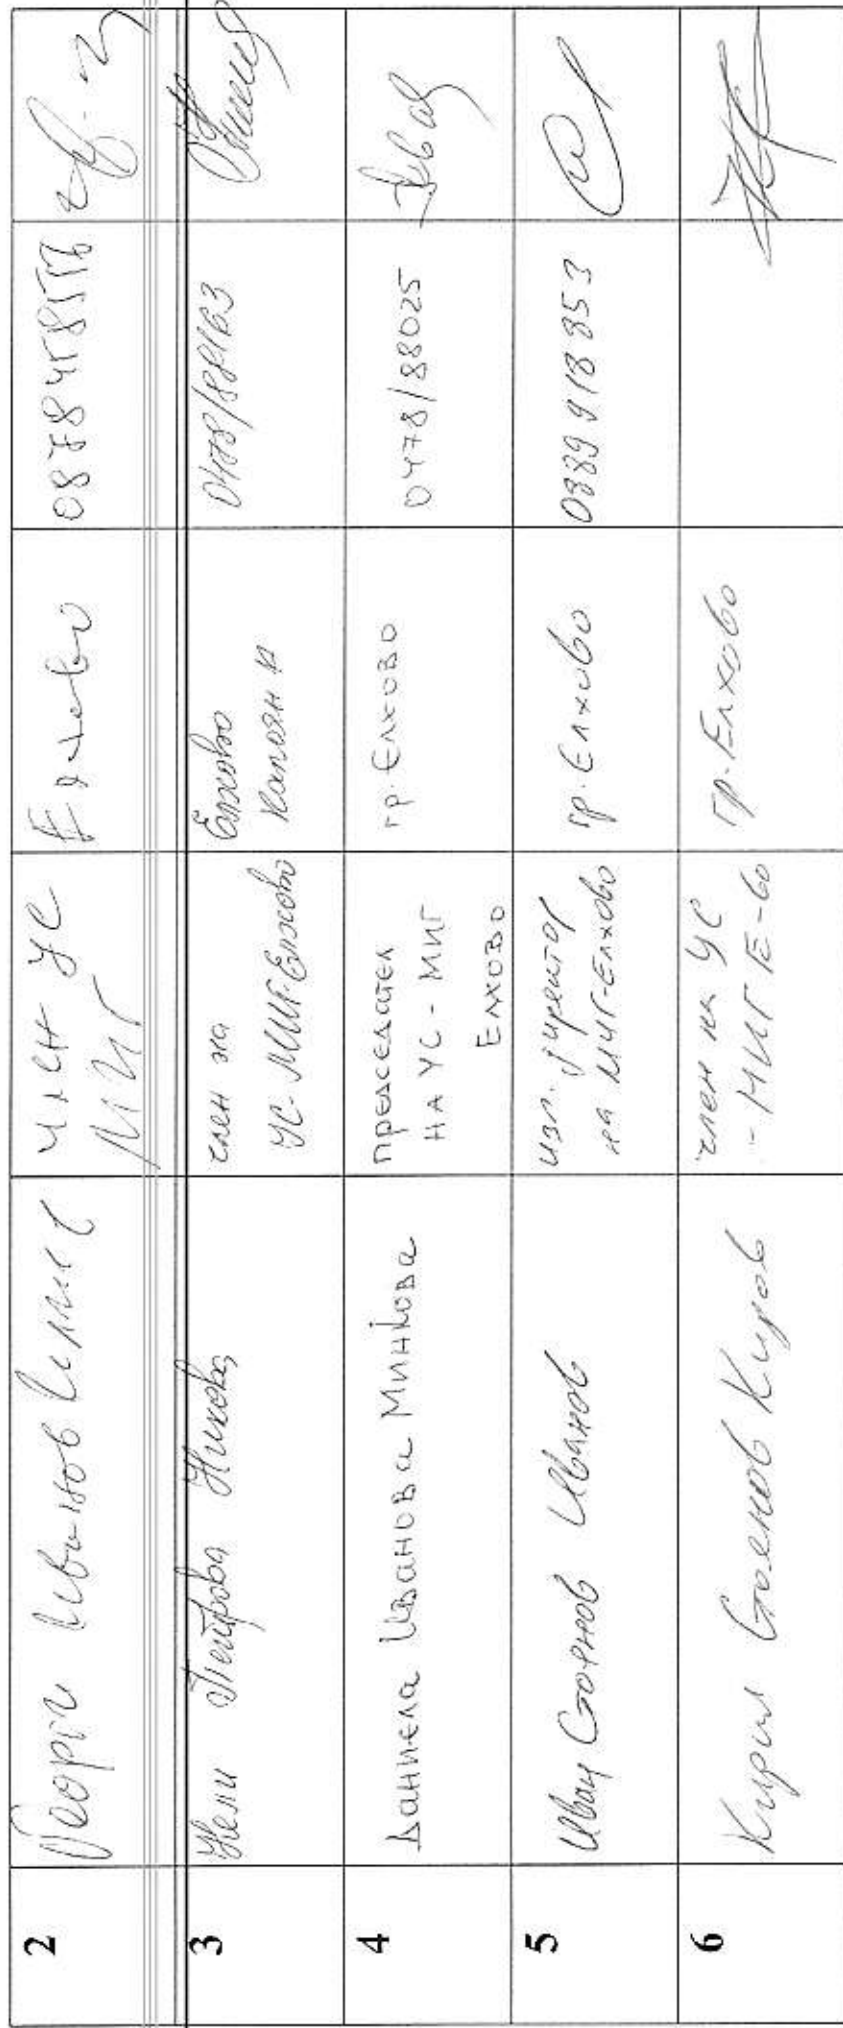 2
Георги Иванов
член УС
МИГ
Елхово
3
Нели Петрова Никова
член на
УС-МИГ-Елхово
Елхово
Калоян
0478/88163
4
Даниела Иванова Минкова
председател
НА УС - МИГ
ЕЛХОВО
гр. Елхово
0478/88025
5
Иван Стоянов Иванов
изп. директор
на МИГ-Елхово
гр. Елхово
0889 918 853
6
Кирил Стоянов Киров
член на УС
- МИГ Е-во
гр. Елхово